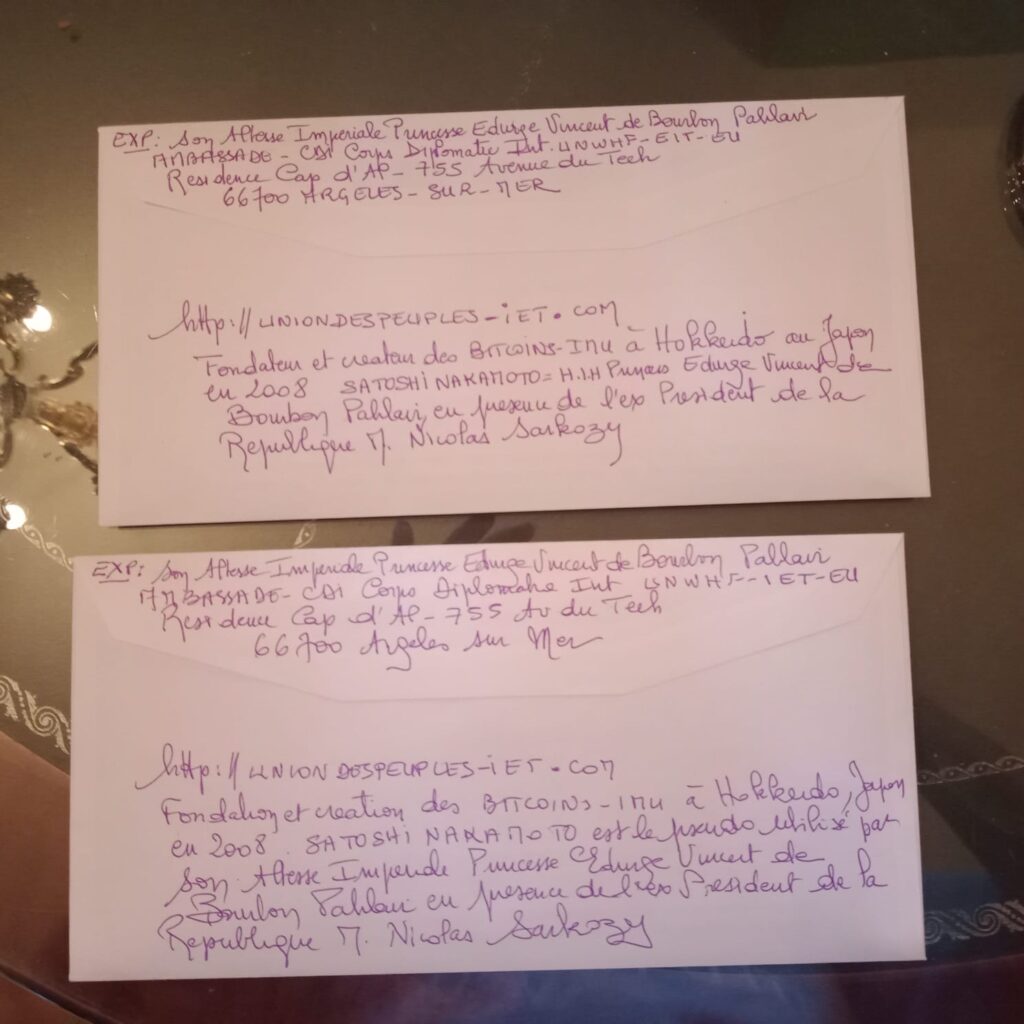 EXP: Son Altesse Imperiale Princesse Edurge Vincent de Bourbon Pahlavi
AMBASSADE - CDI Corps Diplomatic Int. UNWHF - EIT - EU
Residence Cap d'AP - 755 Avenue du Tech
66700 ARGELES - SUR - MER
http://UNIONDESPEUPLES-iET.COM
Fondateur et createur des BITCOINS-INU à Hokkeido au Japon
en 2008 SATOSHI NAKAMOTO = H.I.H Princess Edurge Vincent de
Bourbon Pahlavi, en presence de l'ex President de la
Republique M. Nicolas Sarkozy
EXP: Son Altesse Imperiale Princesse Edurge Vincent de Bourbon Pahlavi
AMBASSADE - CDI Corps Diplomatic Int UNWHF - IET - EU
Residence Cap d'AP - 755 Av du Tech
66700 Argeles sur Mer
http://UNIONDESPEUPLES-iET.COM
Fondation et creation des BITCOINS-INU à Hokkeido, Japon
en 2008. SATOSHI NAKAMOTO est le pseudo utilisé par
Son Altesse Imperiale Princesse Edurge Vincent de
Bourbon Pahlavi en presence de l'ex President de la
Republique M. Nicolas Sarkozy